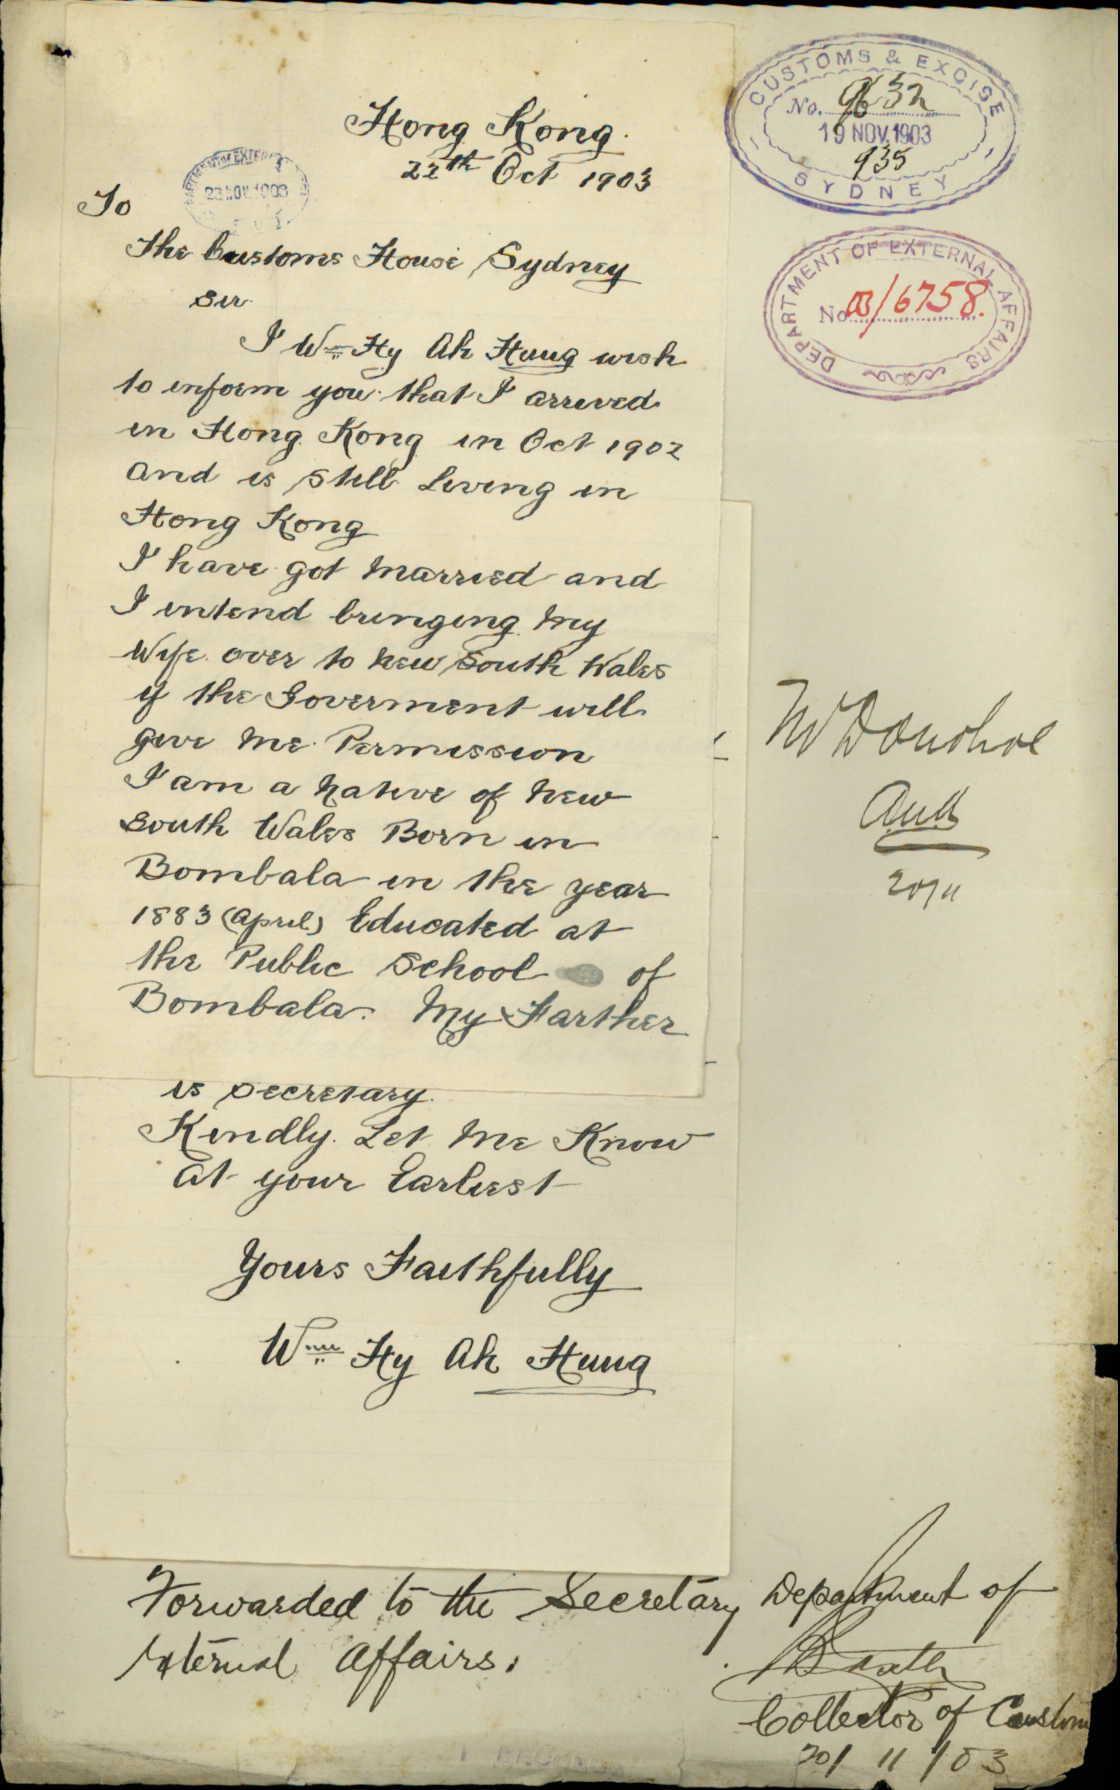 Hong Kong.
22th Oct 1903
23 NOV 1903
To
The Customs House Sydney
Sir
I Wm Hy Ah Hung wish
to inform you that I arrived
in Hong Kong in Oct 1902
and is still Living in
Hong Kong
I have got Married and
I intend bringing My
Wife over to New South Wales
if the Goverment will
give Me Permission
I am a Native of New
South Wales Born in
Bombala in the year
1883 (April) Educated at
the Public School of
Bombala. My Farther
is Secretary.
Kindly Let Me Know
at your Earliest
Yours Faithfully
Wm Hy Ah Hung
CUSTOMS & EXCISE
No. 9632
19 NOV. 1903
935
SYDNEY
DEPARTMENT OF EXTERNAL AFFAIRS
No 03/6758.
Mr Donohoe
20/11
Forwarded to the Secretary Department of
External Affairs.
Collector of Customs
20/11/03